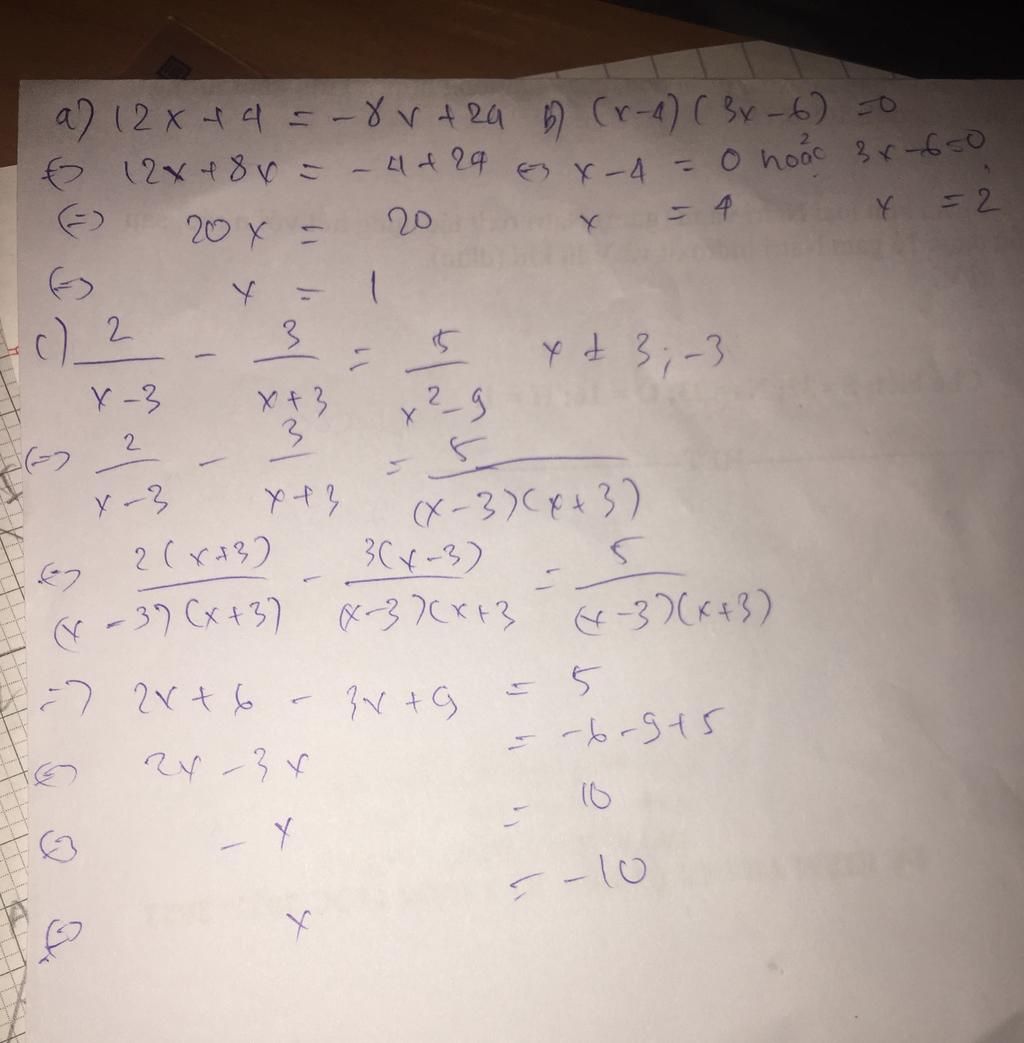 a) 12x + 4 = -8x + 24 b) (x-4)(3x-6) = 0
<=> 12x + 8x = -4 + 24 <=> x-4 = 0 hoặc 3x-6=0
<=> 20x = 20 x = 4 x = 2
<=> x = 1
c) 2/(x-3) - 3/(x+3) = 5/(x²-9) x ≠ 3; -3
<=> 2/(x-3) - 3/(x+3) = 5/((x-3)(x+3))
<=> 2(x+3)/((x-3)(x+3)) - 3(x-3)/((x-3)(x+3 = 5/((x-3)(x+3))
=> 2x + 6 - 3x + 9 = 5
<=> 2x - 3x = -6-9+5
<=> -x = 10
<=> x = -10